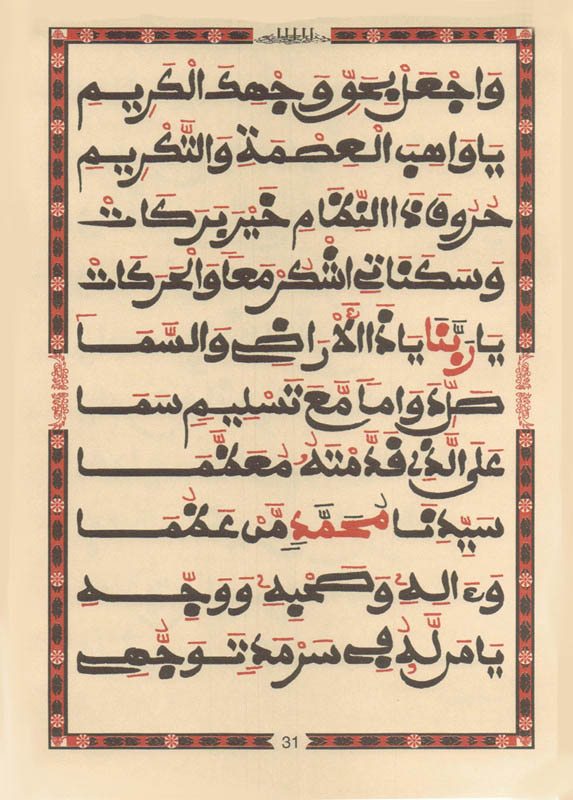 وَاجْعَلْ بِحَقِّ وَجْهِكَ الْكَرِيمِ
يَا وَاهِبَ الْعِصْمَةِ وَالتَّكْرِيمِ
حُرُوفَ ذَا النِّظَامِ خَيْرَ بَرَكَاتْ
وَسَكَنَاتِي اشْكُرْ مَعًا وَالْحَرَكَاتْ
يَا رَبَّنَا يَا ذَا الْأَرَاضِي وَالسَّمَا
صَلِّ دَوَامًا مَّعَ تَسْلِيمٍ سَمَا
عَلَى الَّذِي قَدَّمْتَهُ مُعَظَّمَا
سَيِّدِنَا مُحَمَّدٍ مَّنْ عَظُمَا
وَءَالِهِ وَصَحْبِهِ وَوَجِّهِ
يَا مَن لَّهُ فِي سَرْمَدٍ تَوَجُّهِي
31